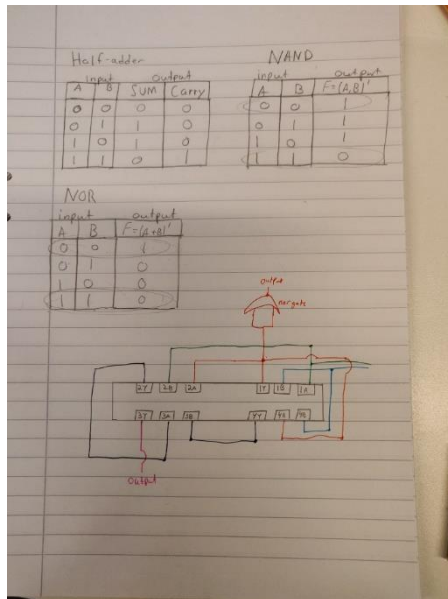 Half-adder
input output
A B SUM Carry
0 0 0 0
0 1 1 0
1 0 1 0
1 1 0 1
NAND
input output
A B F=(A,B)'
0 0 1
0 1 1
1 0 1
1 1 0
NOR
input output
A B F=(A+B)'
0 0 1
0 1 0
1 0 0
1 1 0
output
nor gate
2Y 2B 2A 1Y 1B 1A
3Y 3A 3B 4Y
output